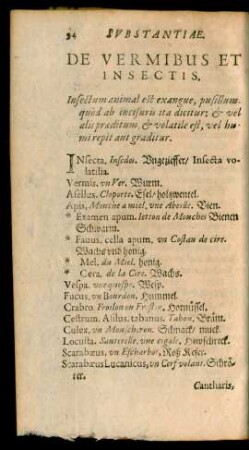 34 SVBSTANTIAE.
DE VERMIBUS ET
INSECTIS.
Insectum animal est exangue, pusillum,
quòd ab incisuris ita dicitur; & vel
alis præditum, & volatile est, vel hu-
mi repit aut graditur.
INsecta, Insectes. Vngeziffer/ Insecta vo-
latilia.
Vermis, vn Ver. Wurm.
Asellus. Cloporte. Esel/ holtzwentel.
Apis, Mouche à miel, vne Abeille. Bien.
* Examen apum. Ietton de Mouches Bienen
Schwarm.
* Fauus, cella apum, vn Costau de cire.
Wachs vnd honig.
* Mel. du Miel. honig.
* Cera. de la Cire. Wachs.
Vespa. vne guespe. Wesp.
Fucus, vn Bourdon. Hummel.
Crabro. Frolon ou Freslon. Hornüssel.
Oestrum. Asilus. tabanus. Tahon. Bräm.
Culex, vn Moucheron. Schnack/ muck.
Locusta. Sauterelle, vne cigale, Hewschreck.
Scarabæus, vn Escharbot, Roß Kefer.
Scarabæus Lucanicus, vn Cerf volant. Schrö-
ter.
Cantharis,